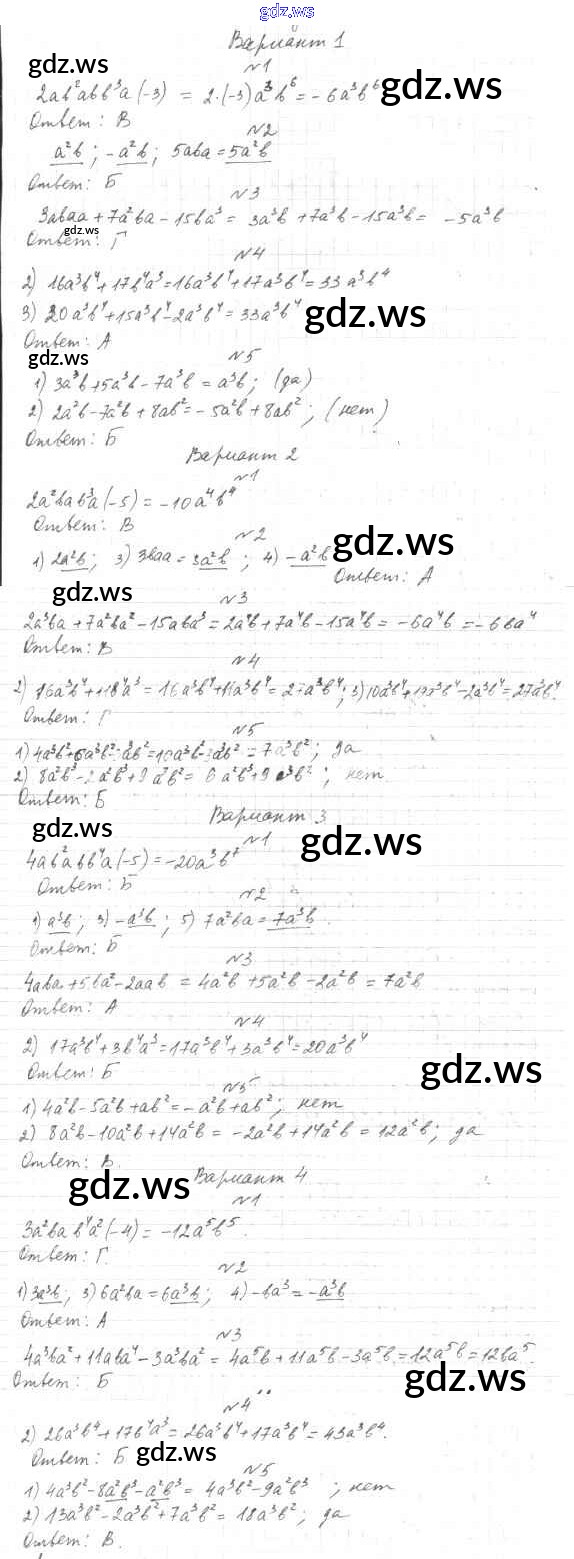 gdz.ws
Вариант 1
gdz.ws
№1
2ab²abb³a(-3) = 2·(-3)a³b⁶ = -6a³b⁶
gdz.ws
Ответ: В
№2
a²b; -a²b; 5aba = 5a²b
Ответ: Б
№3
3abaa + 7a²ba - 15ba³ = 3a³b + 7a³b - 15a³b = -5a³b
gdz.ws
Ответ: Г
№4
2) 16a³b⁴ + 17b⁴a³ = 16a³b⁴ + 17a³b⁴ = 33a³b⁴
3) 20a³b⁴ + 15a³b⁴ - 2a³b⁴ = 33a³b⁴
gdz.ws
Ответ: А
gdz.ws
№5
1) 3a³b + 5a³b - 7a³b = a³b; (да)
2) 2a²b - 7a²b + 8ab² = -5a²b + 8ab²; (нет)
Ответ: Б
Вариант 2
№1
2a²bab³a(-5) = -10a⁴b⁴
Ответ: В
№2
gdz.ws
1) 2a²b; 3) 3baa = 3a²b; 4) -a²b
Ответ: А
gdz.ws
№3
2a³ba + 7a²ba² - 15aba³ = 2a⁴b + 7a⁴b - 15a⁴b = -6a⁴b = -6ba⁴
Ответ: В
№4
2) 16a³b⁴ + 11b⁴a³ = 16a³b⁴ + 11a³b⁴ = 27a³b⁴; 3) 10a³b⁴ + 19a³b⁴ - 2a³b⁴ = 27a³b⁴.
Ответ: Г
№5
1) 4a³b² + 6a³b² - 3a³b² = 10a³b² - 3a³b² = 7a³b²; да
2) 8a²b³ - 2a²b³ + 9a³b² = 6a²b³ + 9a³b²; нет
Ответ: Б
Вариант 3
gdz.ws
gdz.ws
№1
4ab²abb⁴a(-5) = -20a³b⁷
Ответ: Б
№2
1) a³b; 3) -a³b; 5) 7a²ba = 7a³b.
Ответ: Б
№3
4aba + 5ba² - 2aab = 4a²b + 5a²b - 2a²b = 7a²b
Ответ: А
№4
2) 17a³b⁴ + 3b⁴a³ = 17a³b⁴ + 3a³b⁴ = 20a³b⁴
Ответ: Б
gdz.ws
№5
1) 4a²b - 5a²b + ab² = -a²b + ab²; нет
2) 8a²b - 10a²b + 14a²b = -2a²b + 14a²b = 12a²b; да
Ответ: В.
gdz.ws
Вариант 4
№1
3a²bab⁴a²(-4) = -12a⁵b⁵.
Ответ: Г.
№2
1) 3a³b; 3) 6a²ba = 6a³b; 4) -ba³ = -a³b
Ответ: А
№3
4a³ba² + 11aba⁴ - 3a³ba² = 4a⁵b + 11a⁵b - 3a⁵b = 12a⁵b = 12ba⁵.
gdz.ws
Ответ: Б
№4
2) 26a³b⁴ + 17b⁴a³ = 26a³b⁴ + 17a³b⁴ = 43a³b⁴.
Ответ: Б
gdz.ws
№5
1) 4a³b² - 8a²b³ - a²b³ = 4a³b² - 9a²b³; нет
2) 13a³b² - 2a³b² + 7a³b² = 18a³b²; да
Ответ: В.